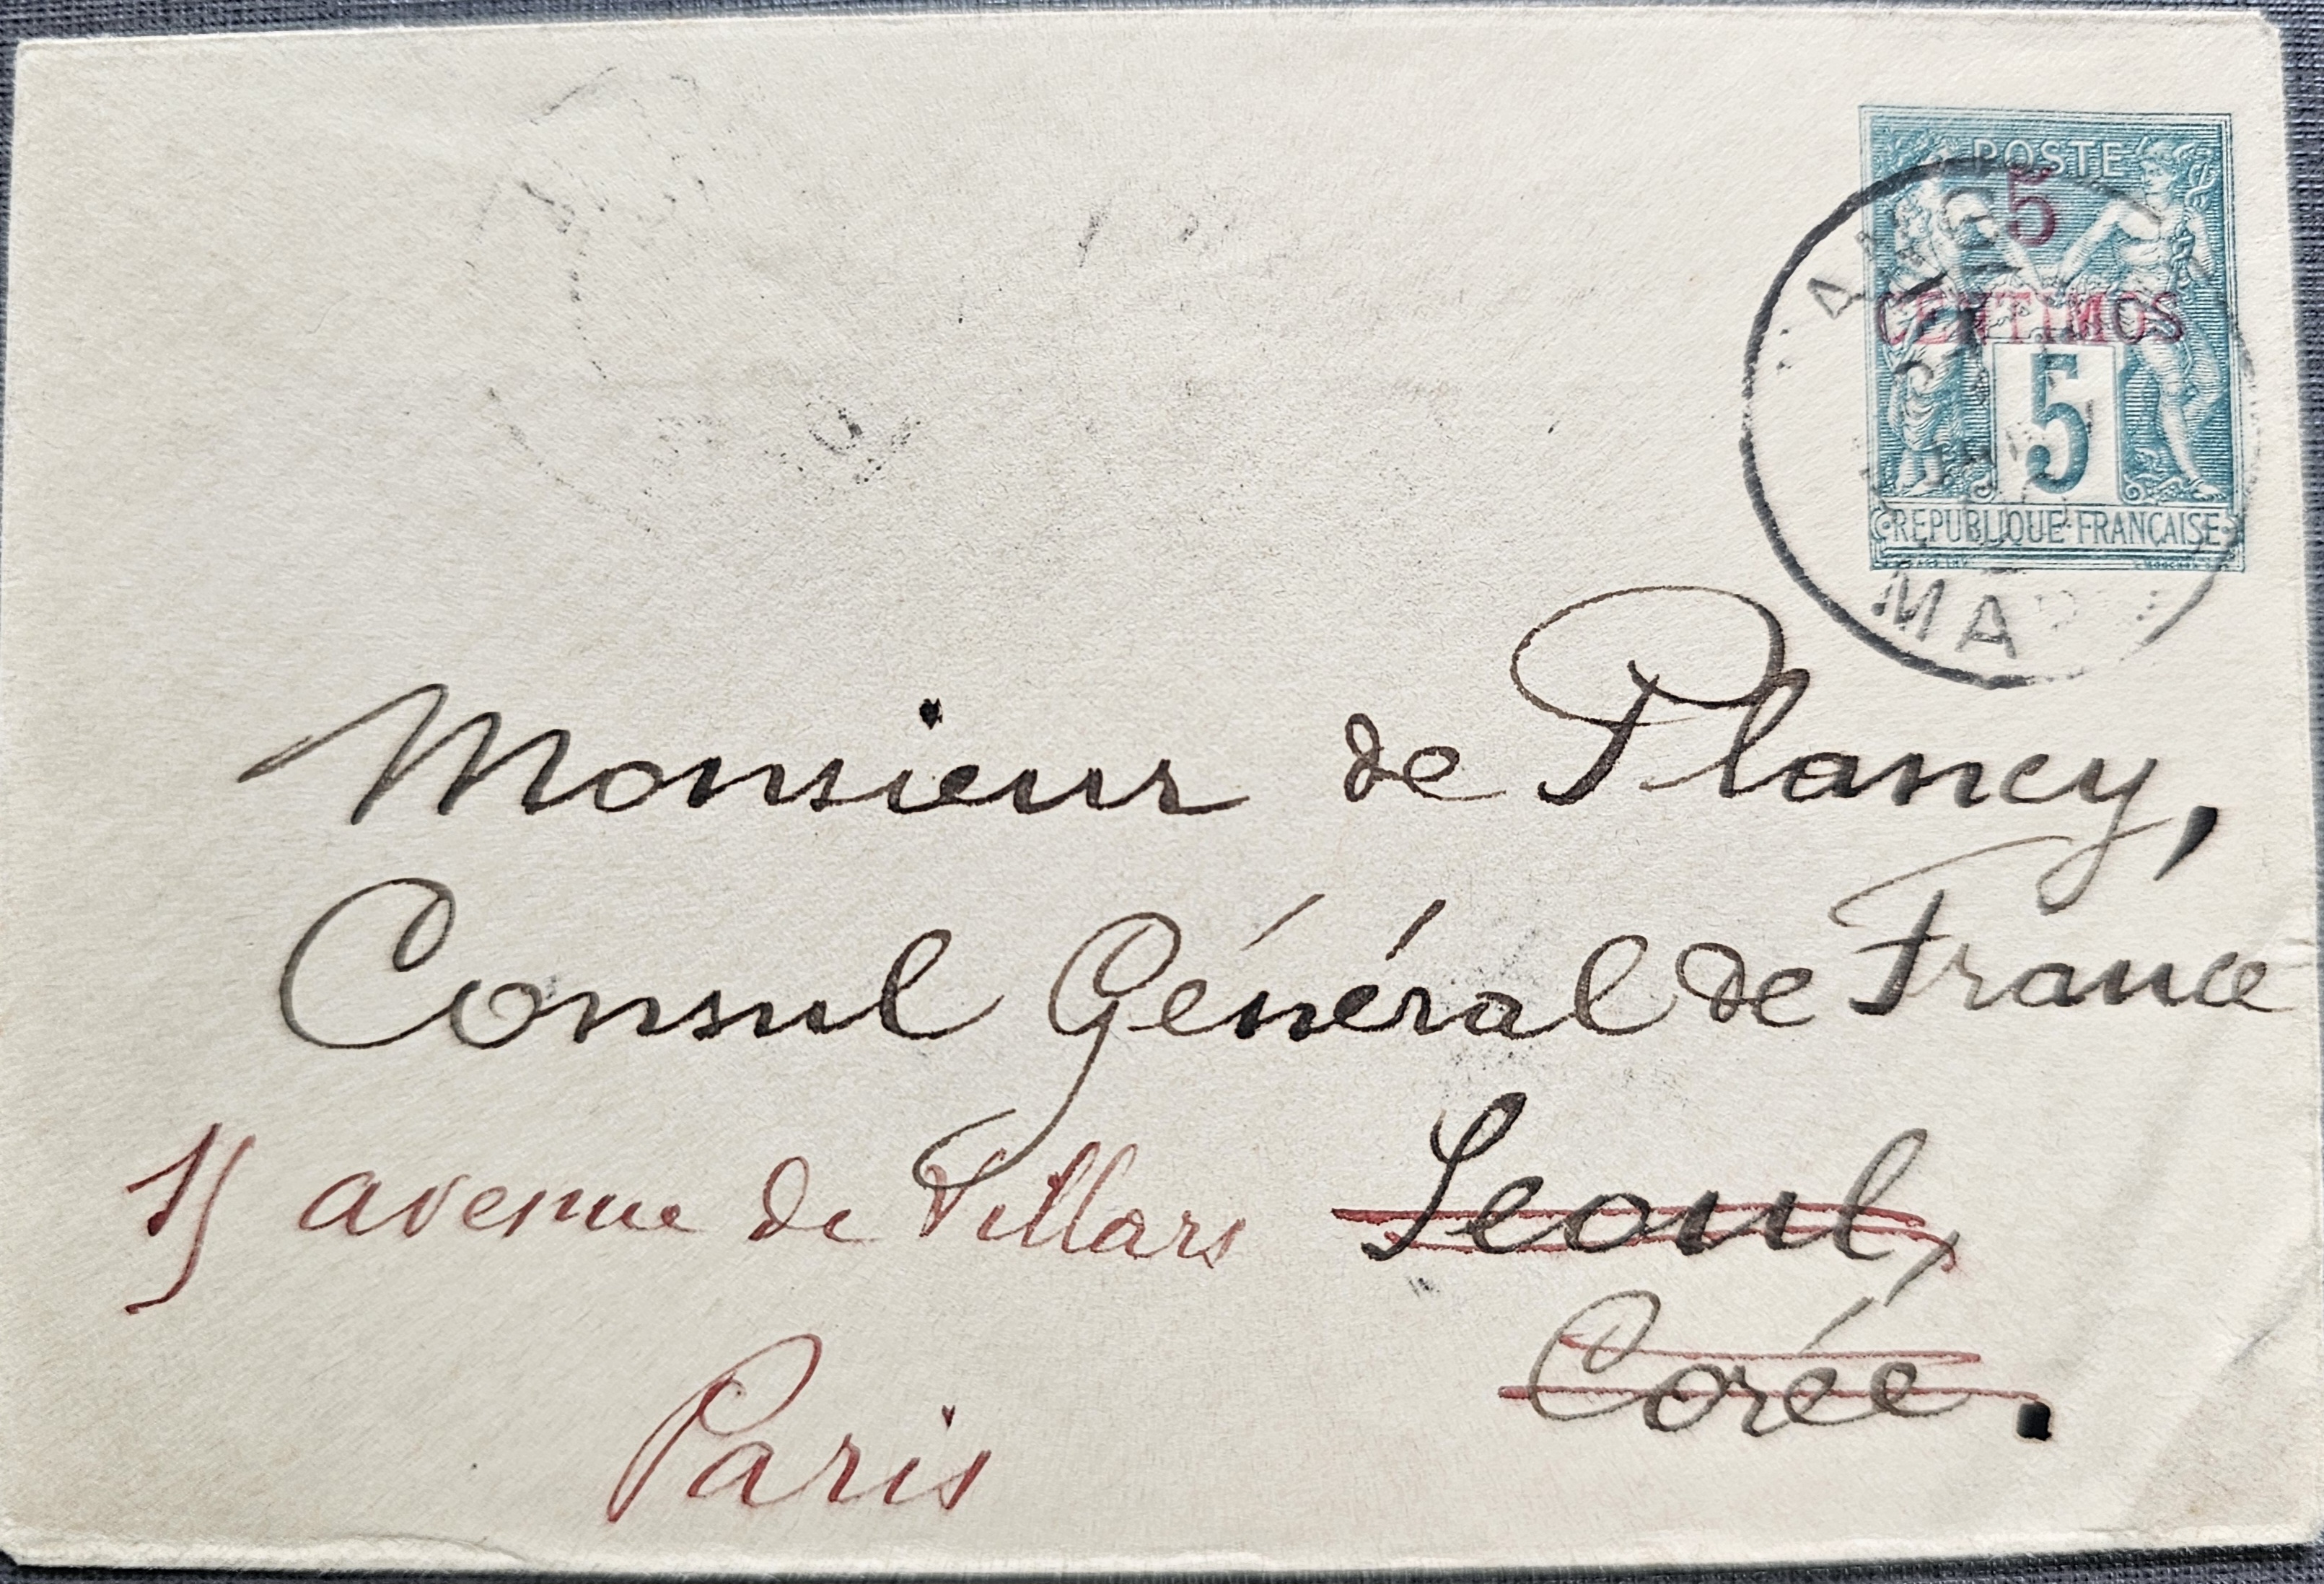 POSTE
5
CENTIMOS
5
REPUBLIQUE FRANÇAISE
Monsieur de Plancy,
Consul Général de France
15 avenue de Villars
Seoul,
Corée.
Paris